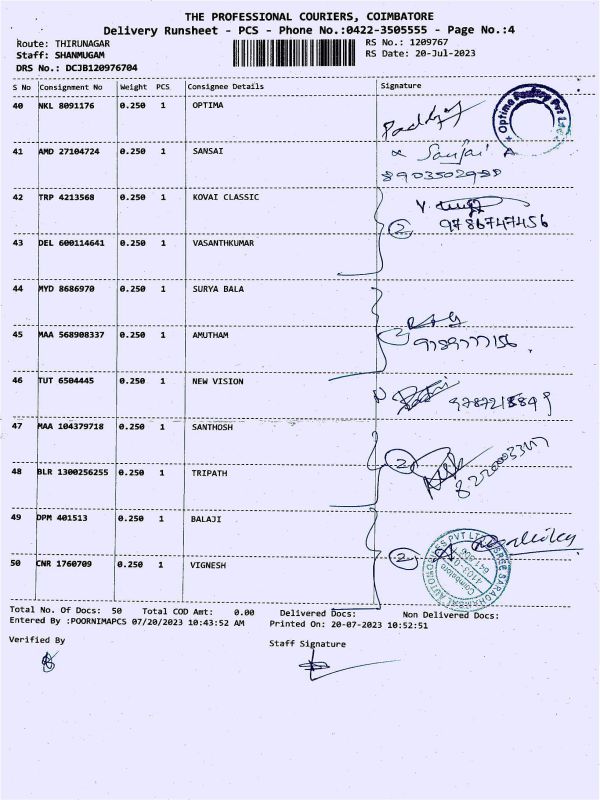 THE PROFESSIONAL COURIERS, COIMBATORE
Delivery Runsheet - PCS - Phone No.:0422-3505555 - Page No.:4
Route: THIRUNAGAR
RS No.: 1209767
Staff: SHANMUGAM
RS Date: 20-Jul-2023
DRS No.: DCJB120976704
S No Consignment No Weight PCS Consignee Details Signature
40 NKL 8091176 0.250 1 OPTIMA
Optima Pvt Ltd
41 AMD 27104724 0.250 1 SANSAI
Sanjai A
8903502980
42 TRP 4213568 0.250 1 KOVAI CLASSIC
2 9786747456
43 DEL 600114641 0.250 1 VASANTHKUMAR
44 MYD 8686970 0.250 1 SURYA BALA
45 MAA 568908337 0.250 1 AMUTHAM
2
46 TUT 6504445 0.250 1 NEW VISION
47 MAA 104379718 0.250 1 SANTHOSH
48 BLR 1300256255 0.250 1 TRIPATH
2
49 DPM 401513 0.250 1 BALAJI
50 CNR 1760709 0.250 1 VIGNESH
2
Total No. Of Docs: 50 Total COD Amt: 0.00 Delivered Docs: Non Delivered Docs:
Entered By :POORNIMAPCS 07/20/2023 10:43:52 AM Printed On: 20-07-2023 10:52:51
Verified By
Staff Signature